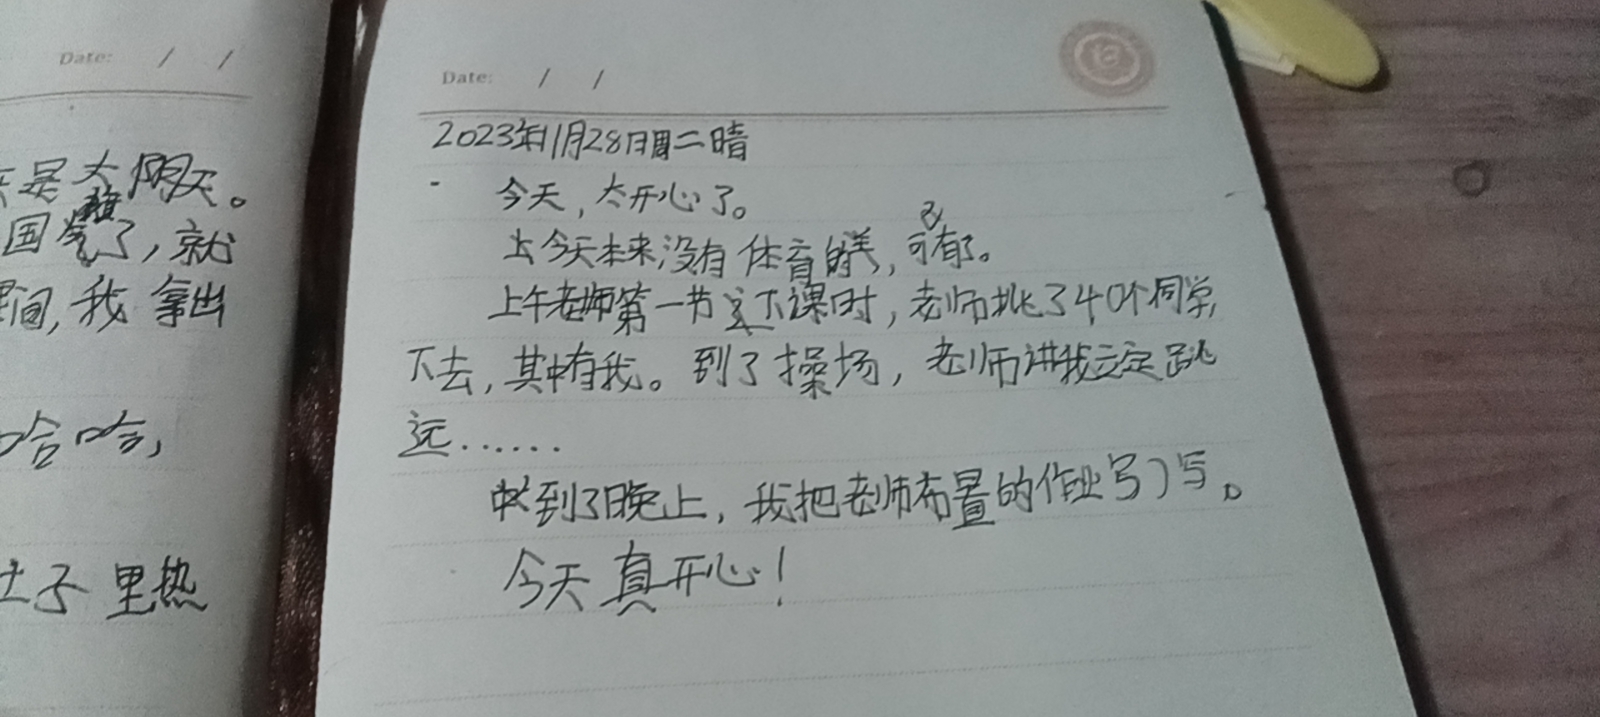 Date: / /
是大阴天。
国旗了，就
间，我拿出
哈哈，
土子里热
Date: / /
2023年11月28日周二晴
今天，太开心了。
今天本来没有体育，可又有了。
上午老师第一节下课时，老师挑了40个同学
下去，其中有我。到了操场，老师讲我立定跳
远……
到了晚上，我把老师布置的作业写了写。
今天真开心！